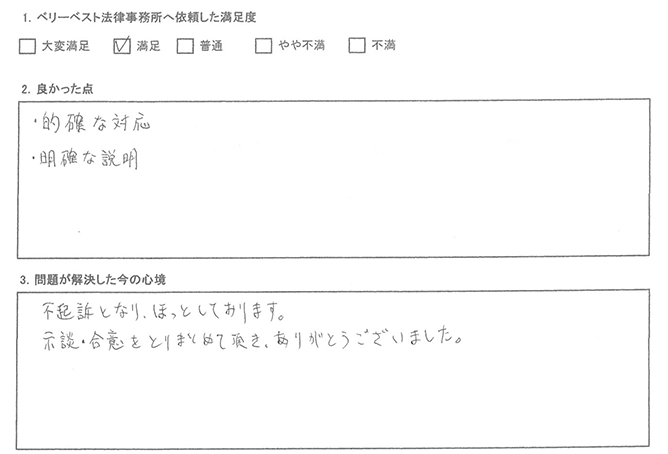 1. ベリーベスト法律事務所へ依頼した満足度
□ 大変満足 ☑ 満足 □ 普通 □ やや不満 □ 不満
2. 良かった点
・的確な対応
・明確な説明
3. 問題が解決した今の心境
不起訴となり、ほっとしております。
示談・合意をとりまとめて頂き、ありがとうございました。